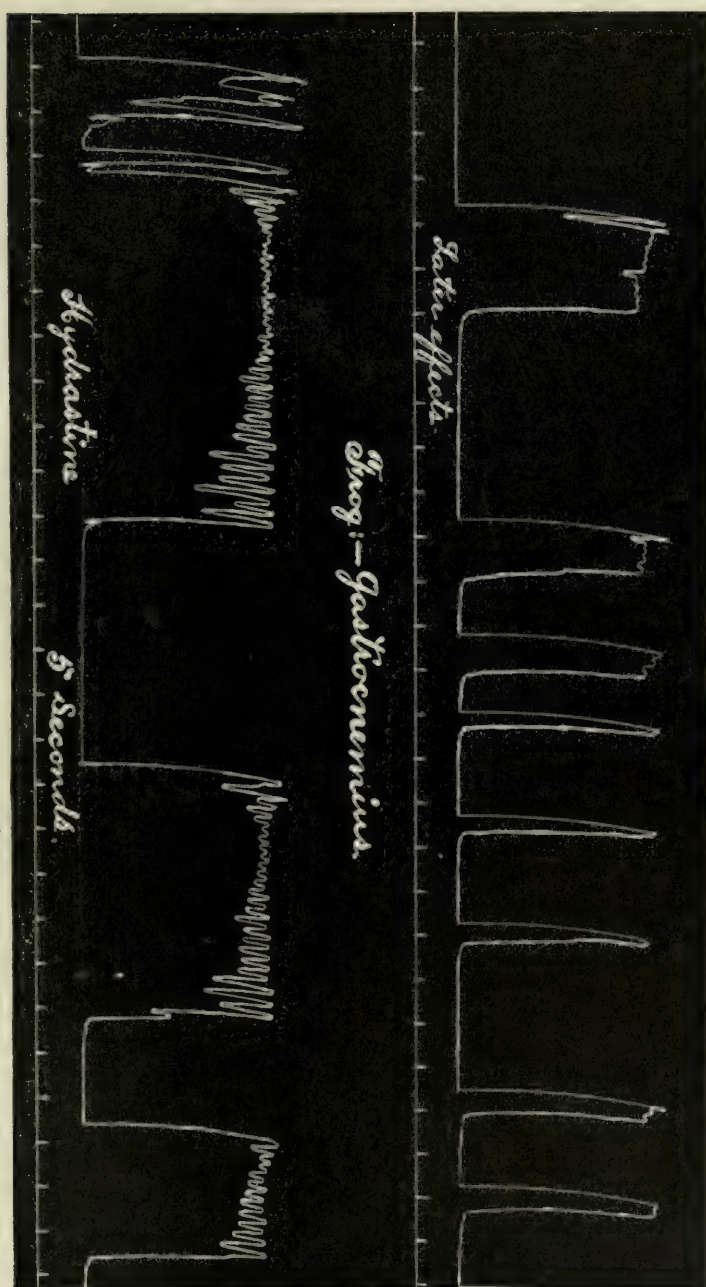 Later effects.
Frog:—Gastrocnemius.
Hydrastine 5 Seconds.